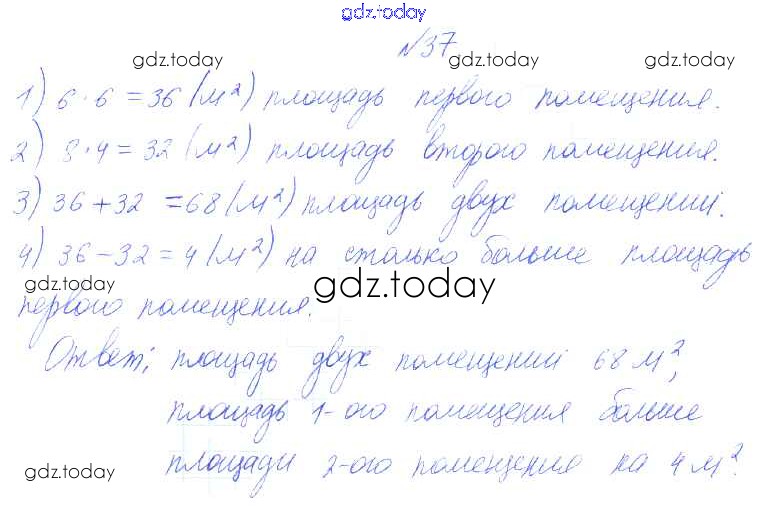 gdz.today
№37
gdz.today gdz.today gdz.today
1) 6 · 6 = 36 (м²) площадь первого помещения.
2) 8 · 4 = 32 (м²) площадь второго помещения.
3) 36 + 32 = 68 (м²) площадь двух помещений.
4) 36 - 32 = 4 (м²) на столько больше площадь
gdz.today gdz.today gdz.today
первого помещения.
Ответ: площадь двух помещений 68 м²,
площадь 1-ого помещения больше
площади 2-ого помещения на 4 м².
gdz.today gdz.today